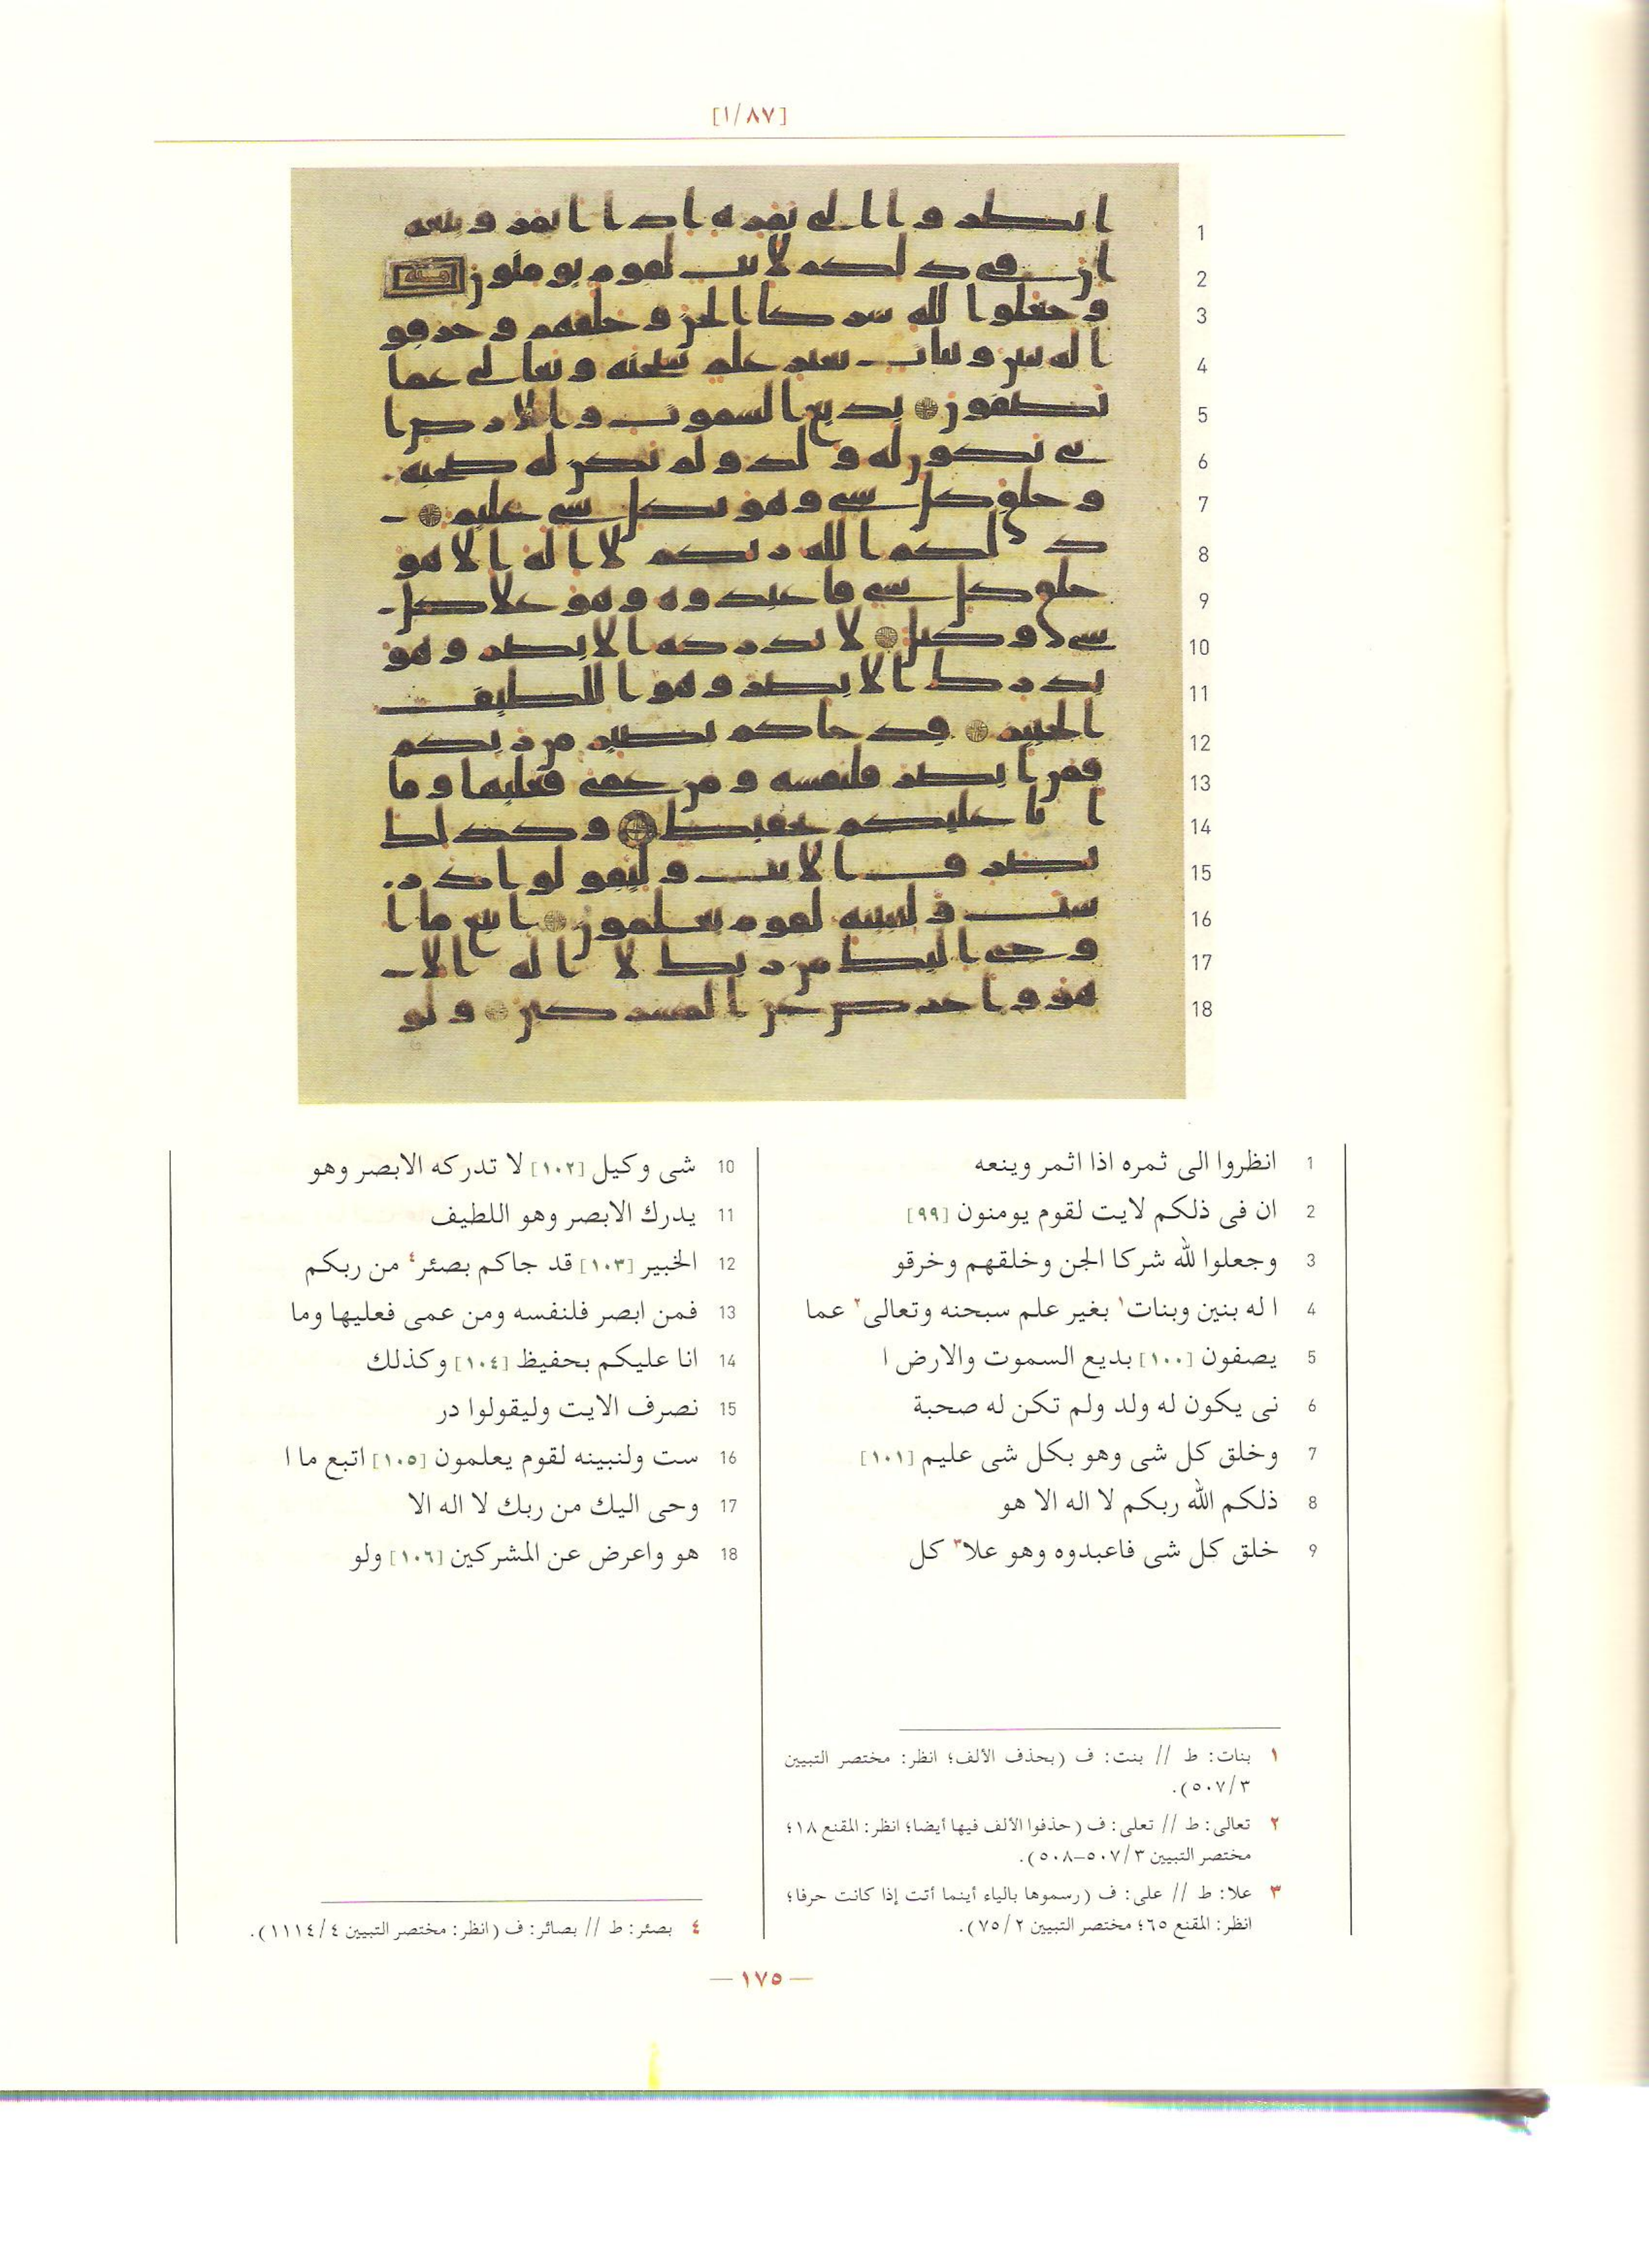 [١/٨٧]
1 انظروا الى ثمره اذا اثمر وينعه
2 ان فى ذلكم لايت لقوم يومنون [٩٩]
3 وجعلوا لله شركا الجن وخلقهم وخرقو
4 ا له بنين وبنات١ بغير علم سبحنه وتعالى٢ عما
5 يصفون [١٠٠] بديع السموت والارض ا
6 نى يكون له ولد ولم تكن له صحبة
7 وخلق كل شى وهو بكل شى عليم [١٠١]
8 ذلكم الله ربكم لا اله الا هو
9 خلق كل شى فاعبدوه وهو علا٣ كل
10 شى وكيل [١٠٢] لا تدركه الابصر وهو
11 يدرك الابصر وهو اللطيف
12 الخبير [١٠٣] قد جاكم بصئر٤ من ربكم
13 فمن ابصر فلنفسه ومن عمى فعليها وما
14 انا عليكم بحفيظ [١٠٤] وكذلك
15 نصرف الايت وليقولوا در
16 ست ولنبينه لقوم يعلمون [١٠٥] اتبع ما ا
17 وحى اليك من ربك لا اله الا
18 هو واعرض عن المشركين [١٠٦] ولو
١ بنات: ط // بنت: ف (بحذف الألف؛ انظر: مختصر التبيين
٣/٥٠٧).
٢ تعالى: ط // تعلى: ف (حذفوا الألف فيها أيضا؛ انظر: المقنع ١٨؛
مختصر التبيين ٣/٥٠٧–٥٠٨).
٣ علا: ط // على: ف (رسموها بالياء أينما أتت إذا كانت حرفا؛
انظر: المقنع ٦٥؛ مختصر التبيين ٢/٧٥).
٤ بصئر: ط // بصائر: ف (انظر: مختصر التبيين ٤/١١١٤).
— ١٧٥ —